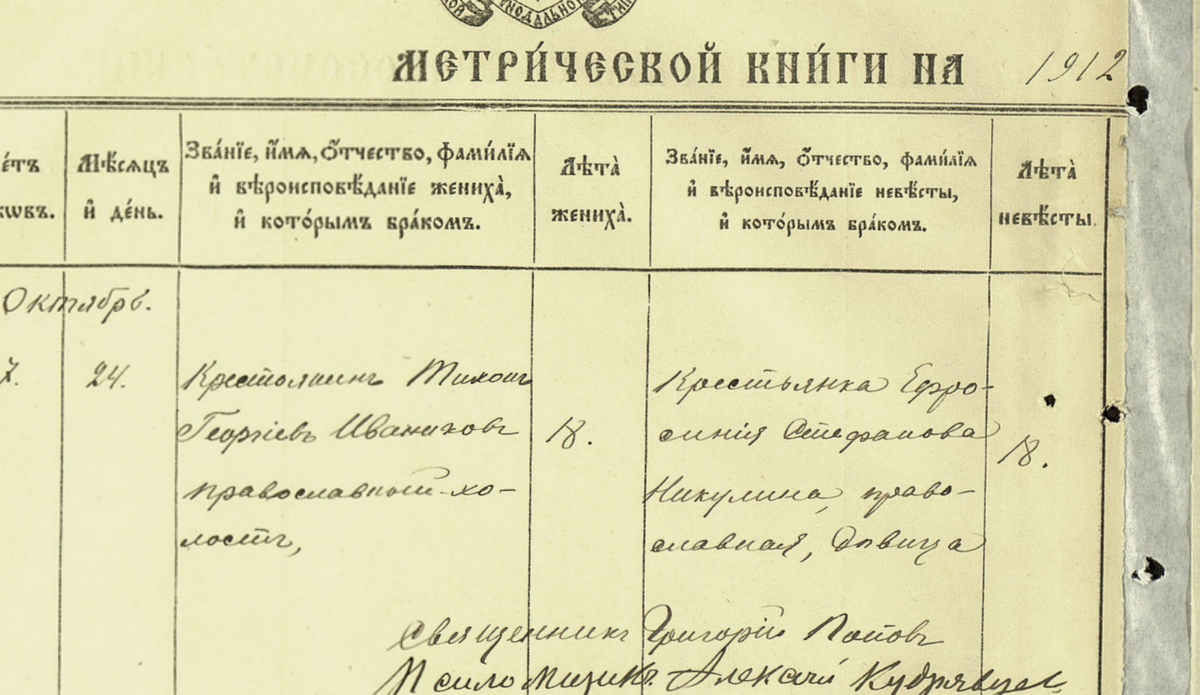 НОДАЛЬНО
МЕТРИ́ЧЕСКОЙ КНИ́ГИ НА 1912
е́тъ
ковъ.
Мѣ́сѧцъ
и҆ де́нь.
Зва́нїе, и҆́мѧ, ѻ҆́тчество, фами́лїѧ
и҆ вѣроисповѣ́данїе жениха̀,
и҆ кото́рымъ бра́комъ.
Лѣта̀
жениха̀.
Зва́нїе, и҆́мѧ, ѻ҆́тчество, фами́лїѧ
и҆ вѣроисповѣ́данїе невѣ́сты,
и҆ кото́рымъ бра́комъ.
Лѣта̀
невѣ́сты.
Октябрь.
7.
24.
Крестьянинъ Тихонъ
Георгіевъ Иваниховъ
православный хо-
лостъ,
18.
Крестьянка Ефро-
синія Стефанова
Никулина, право-
славная, дѣвица
18.
Священникъ Григорій Поповъ
Псаломщикъ Алексѣй Кудрявцев